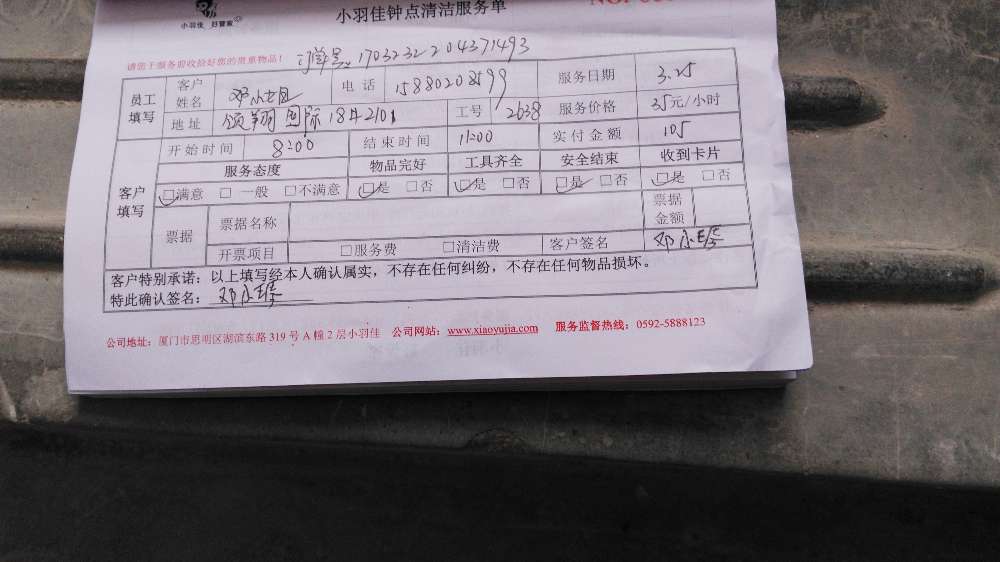 小羽佳 好管家
小羽佳钟点清洁服务单
请您于服务前收拾好您的贵重物品！
1703232204371493
员工填写 客户姓名 邓小 电话 15880208599 服务日期 3.25
地址 颂翔国际18#2101 工号 2638 服务价格 35元/小时
客户填写 开始时间 8:00 结束时间 11:00 实付金额 105
服务态度 物品完好 工具齐全 安全结束 收到卡片
☑满意 □一般 □不满意 ☑是 □否 ☑是 □否 ☑是 □否 ☑是 □否
票据 票据名称 票据金额
开票项目 □服务费 □清洁费 客户签名 邓小
客户特别承诺：以上填写经本人确认属实，不存在任何纠纷，不存在任何物品损坏。
特此确认签名：邓小
公司地址：厦门市思明区湖滨东路319号A幢2层小羽佳 公司网站：www.xiaoyujia.com 服务监督热线：0592-5888123